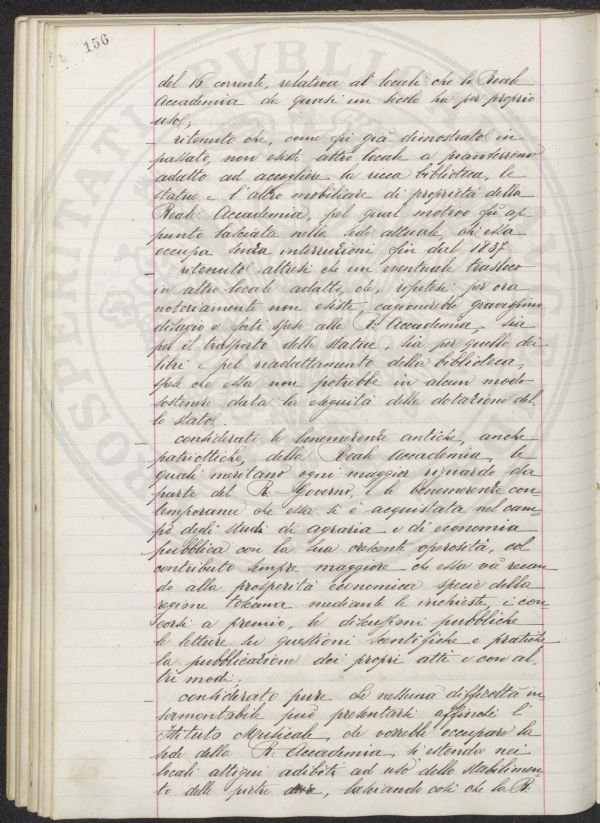 156
del 16 corrente, relativa ai locali che la Reale
Accademia da quasi un secolo ha per proprio
uso;
— ritenuto che, come fu già dimostrato in
passato, non esiste altro locale a pianterreno
adatto ad accogliere la ricca biblioteca, le
statue e l'altro mobiliare di proprietà della
Reale Accademia, pel qual motivo fu ap-
punto lasciata nella sede attuale che essa
occupa senza interruzioni fin dal 1837
— ritenuto altresì che un eventuale trasloco
in altro locale adatto, che, ripetesi per ora
notoriamente non esiste, cagionerebbe gravissimo
disagio e forti spese alla R. Accademia, sia
per il trasporto delle statue, sia per quello dei
libri e pel riadattamento della biblioteca,
spese che essa non potrebbe in alcun modo
sostenere data la esiguità della dotazione del-
lo stato;
— considerate le benemerenze antiche, anche
patriottiche, della Reale Accademia, le
quali meritano ogni maggior riguardo da
parte del R. Governo, e le benemerenze con-
temporanee che essa si è acquistata nel cam-
po degli studi di agraria e di economia
pubblica con la sua crescente operosità, col
contributo sempre maggiore che essa va recan-
do alla prosperità economica specie della
regione toscana mediante le inchieste, i con-
corsi a premio, le discussioni pubbliche
le letture su questioni scientifiche e pratiche
la pubblicazione dei propri atti e con al-
tri modi;
— considerato pure che nessuna difficoltà in-
sormontabile può presentarsi affinchè l'
Istituto Musicale, che vorrebbe occupare la
sede della R. Accademia, si estenda nei
locali attigui adibiti ad uso dello stabilimen-
to delle pietre dure, lasciando così che la R.
PROSPERITATI REIPUBLICAE